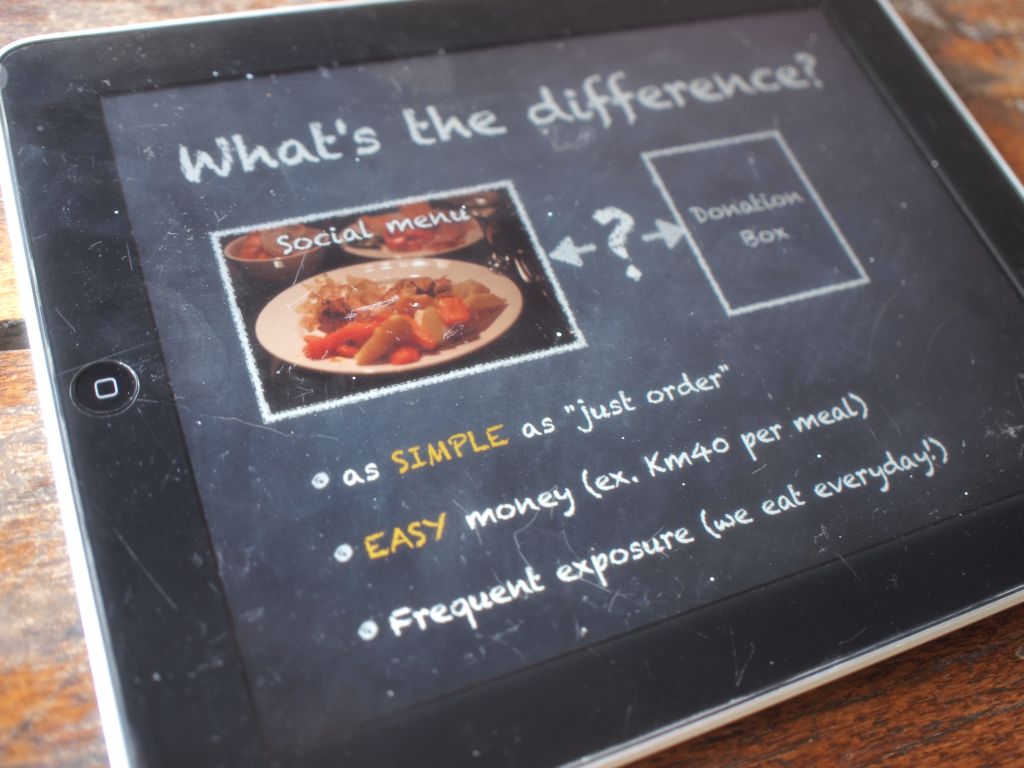 What's the difference?
Social menu
?
Donation
Box
• as SIMPLE as "just order"
• EASY money (ex. Km40 per meal)
• Frequent exposure (we eat everyday!)